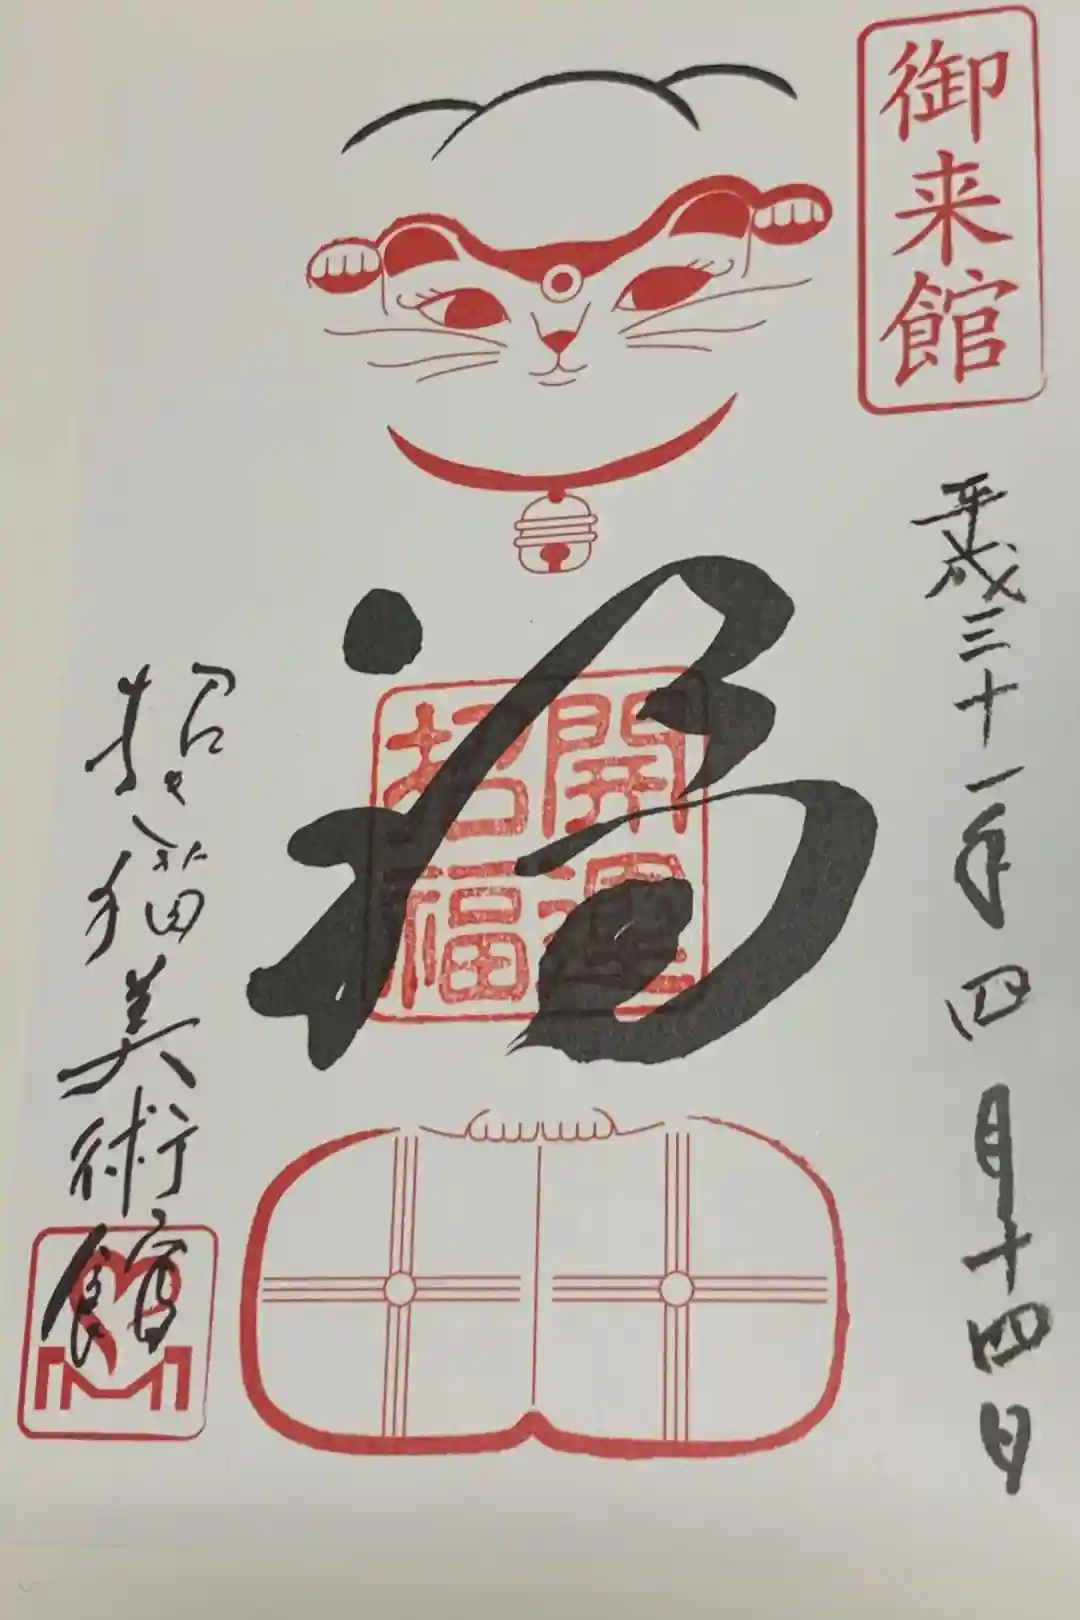 御来館
平成三十一年四月十四日
福
開運
招福
招き猫美術館